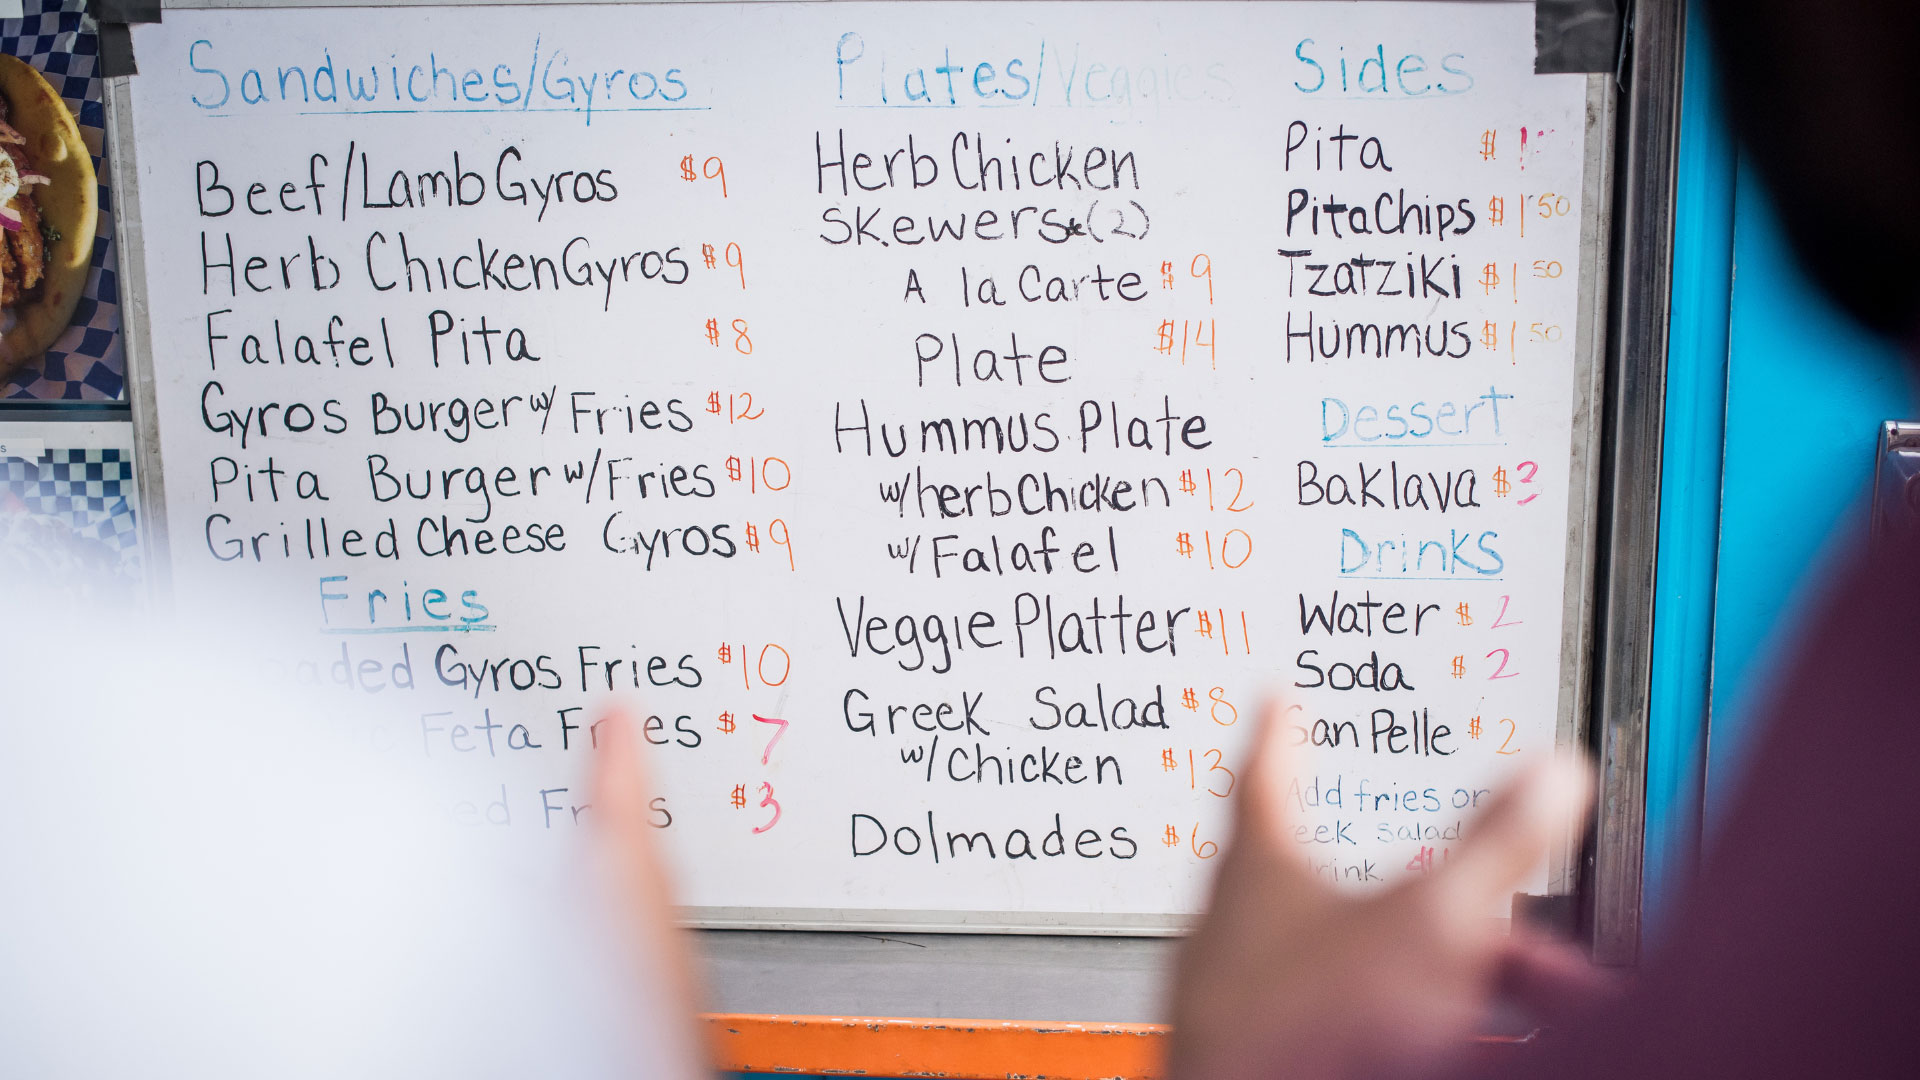 Sandwiches/Gyros
Beef/Lamb Gyros $9
Herb Chicken Gyros $9
Falafel Pita $8
Gyros Burger w/ Fries $12
Pita Burger w/ Fries $10
Grilled Cheese Gyros $9
Fries
Gyros Fries $10
Feta Fries $7
$3
Plates/Veggies
Herb Chicken
Skewers (2)
A la Carte $9
Plate $14
Hummus Plate
w/ herb Chicken $12
w/ Falafel $10
Veggie Platter $11
Greek Salad $8
w/ Chicken $13
Dolmades $6
Sides
Pita $1
Pita Chips $1.50
Tzatziki $1 50
Hummus $1 50
Dessert
Baklava $3
Drinks
Water $2
Soda $2
San Pelle $2
Add fries or
salad